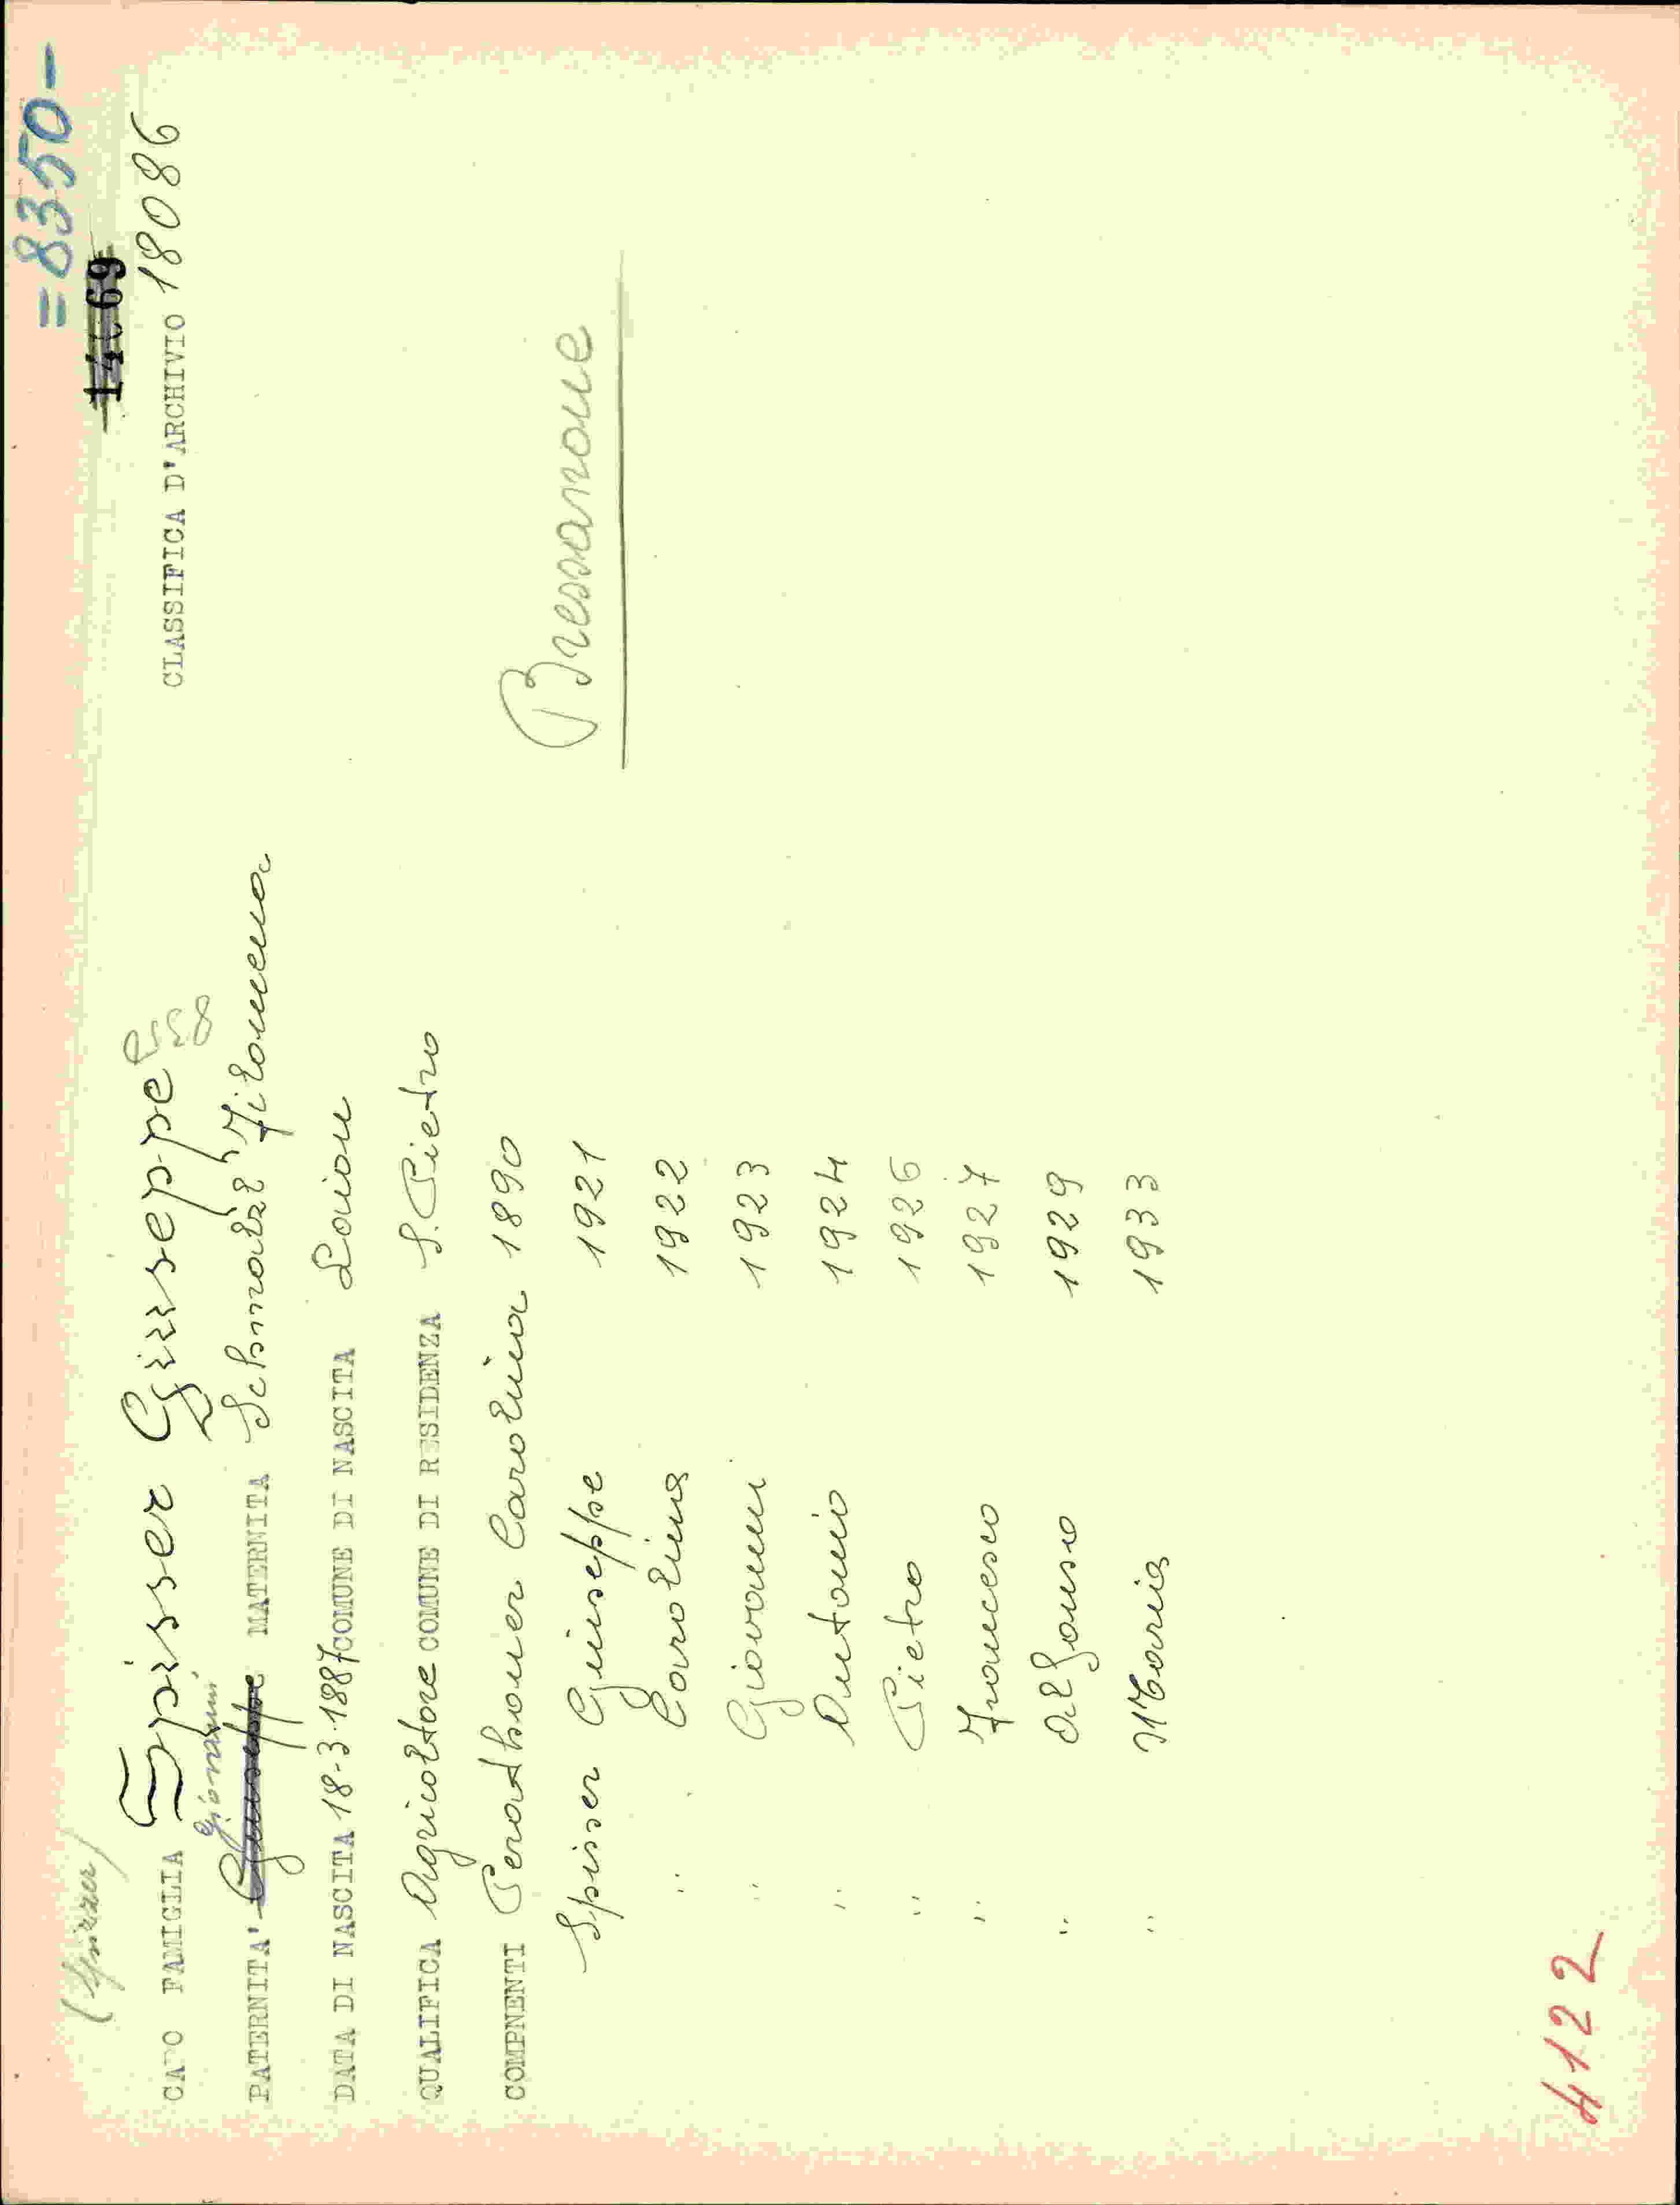 = 8350 -
CLASSIFICA D'ARCHIVIO 18086
CAPO FAMIGLIA Spisser Giuseppe
Giovanni
PATERNITA' Giuseppe MATERNITA Schmalzl Filomena
DATA DI NASCITA 18-3-1887 COMUNE DI NASCITA Laion
QUALIFICA Agricoltore COMUNE DI RESIDENZA S. Pietro
COMPNENTI Perathoner Carolina 1890
Spisser Giuseppe 1921
" Carolina 1922
" Giovanni 1923
" Antonio 1924
" Pietro 1926
" Francesco 1927
" Alfonso 1929
" Maria 1933
Bressanone
4122